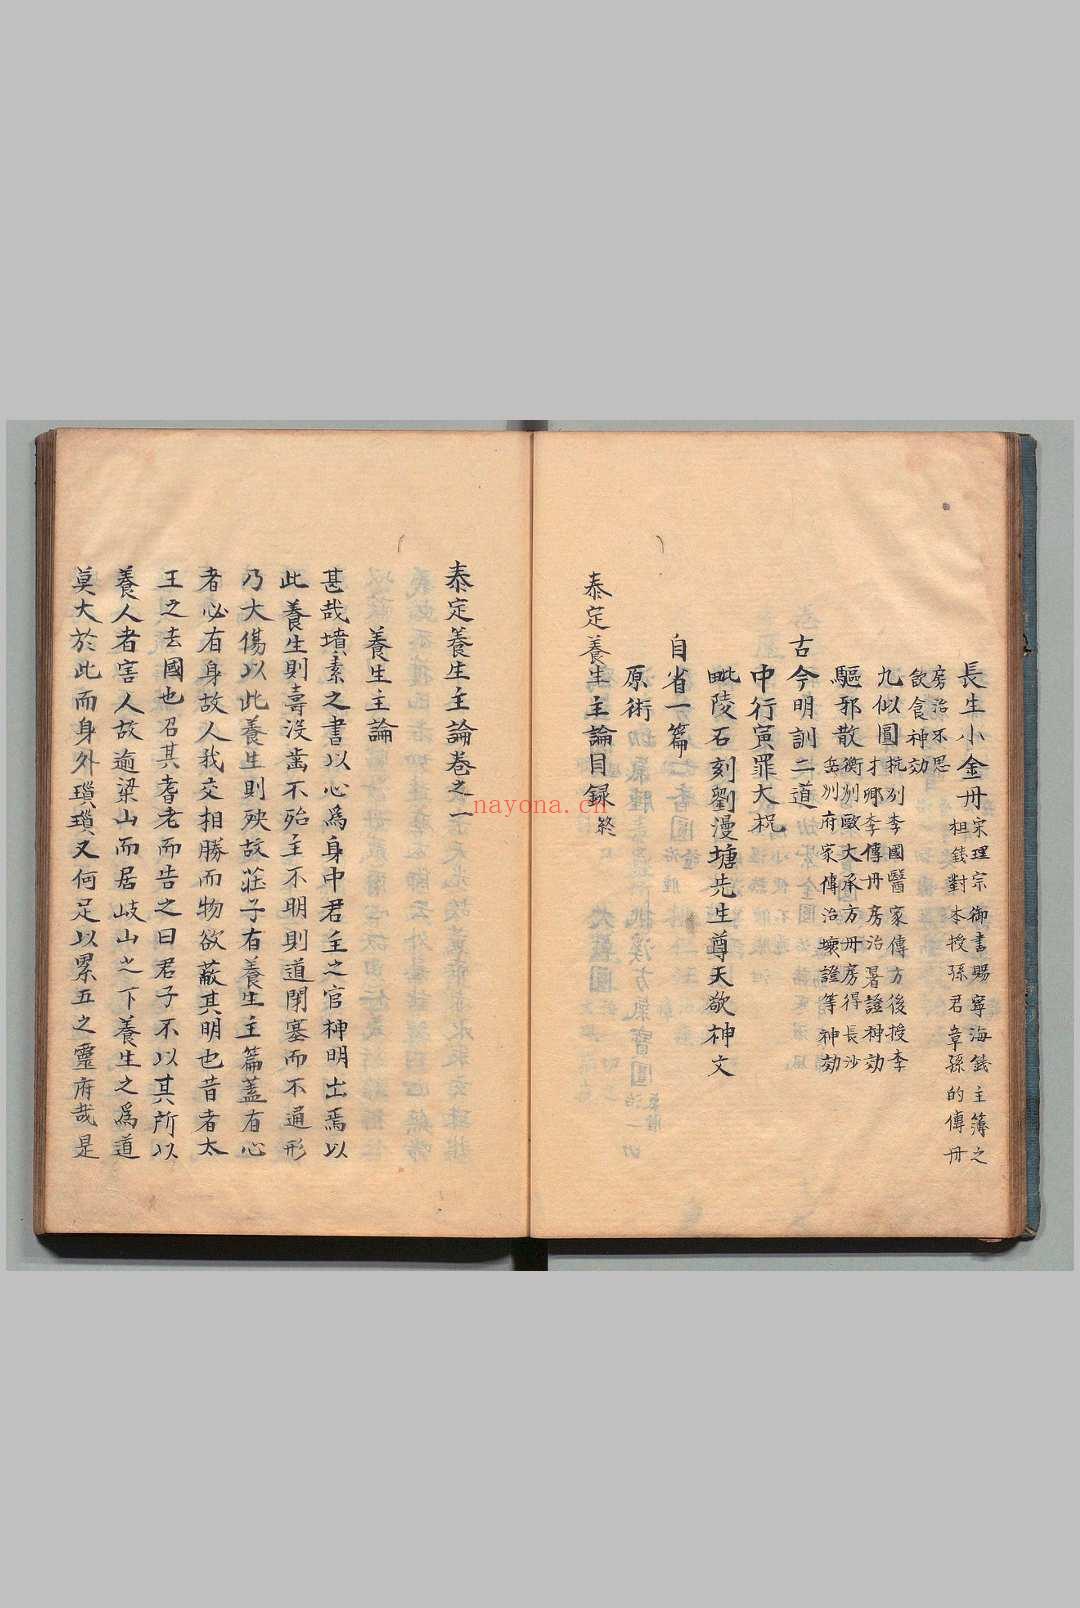 長生小金丹
宋理宗御書賜寧海錢主簿之
祖錢對本授孫君章孫的傳丹
房治不思
飲食神効
九似圓
抗別李國醫家傳方後授李
才鄉李傳丹房治暑證神効
驅邪散
衡別歐大承方丹房得長沙
岳別府家傳治壞證等神効
古今明訓二道
中行寅罪大祝
毗陵石刻劉漫塘先生尊天欲神文
自省一篇
原術
泰定養生主論目録終
泰定養生主論卷之一
養生主論
甚哉墳素之書以心爲身中君主之官神明出焉以
此養生則壽沒齒不殆主不明則道閉塞而不通形
乃大傷以此養生則殃故莊子有養生主篇蓋有心
者必有身故人我交相勝而物欲蔽其明也昔者太
王之去國也召其耆老而告之曰君子不以其所以
養人者害人故逾梁山而居岐山之下養生之爲道
莫大於此而身外瑣瑣又何足以累五之靈府哉是
nayona.cn